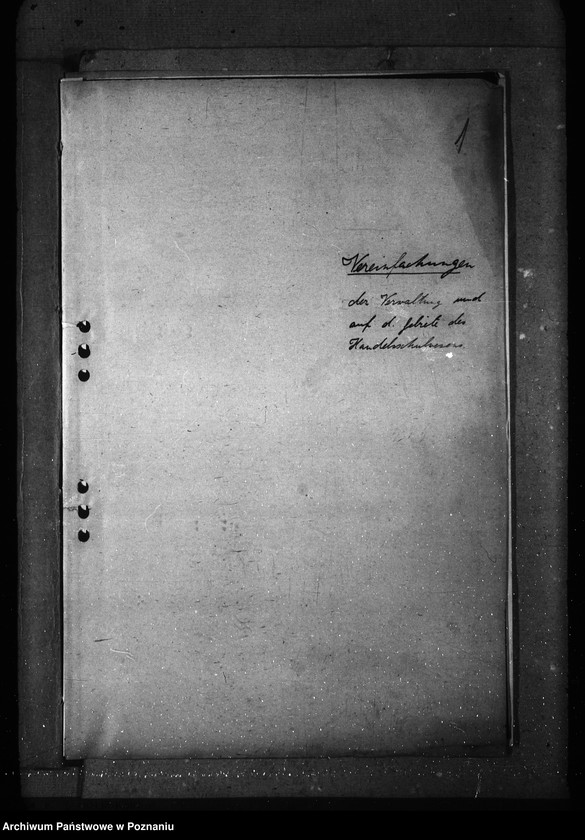 1
Vereinfachungen
der Verwaltung und
auf d. Gebiete des
Handelsschulwesens.
Archiwum Państwowe w Poznaniu